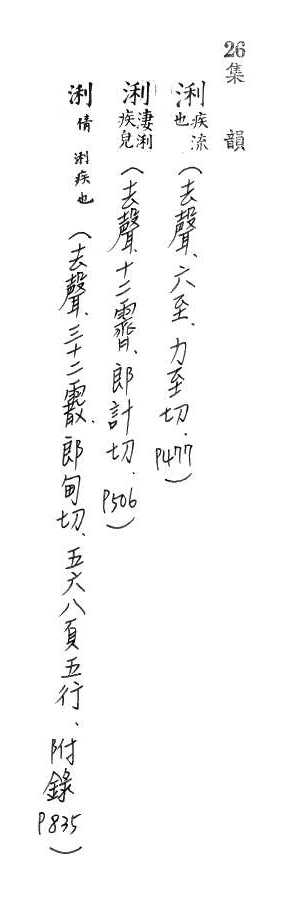 26集韻
浰疾流也（去聲、六至、力至切．P477）
浰淒浰疾皃（去聲、十二霽、郎計切．P506）
浰倩浰疾也（去聲、三十二霰、郎甸切、五六八頁五行、附錄P835）